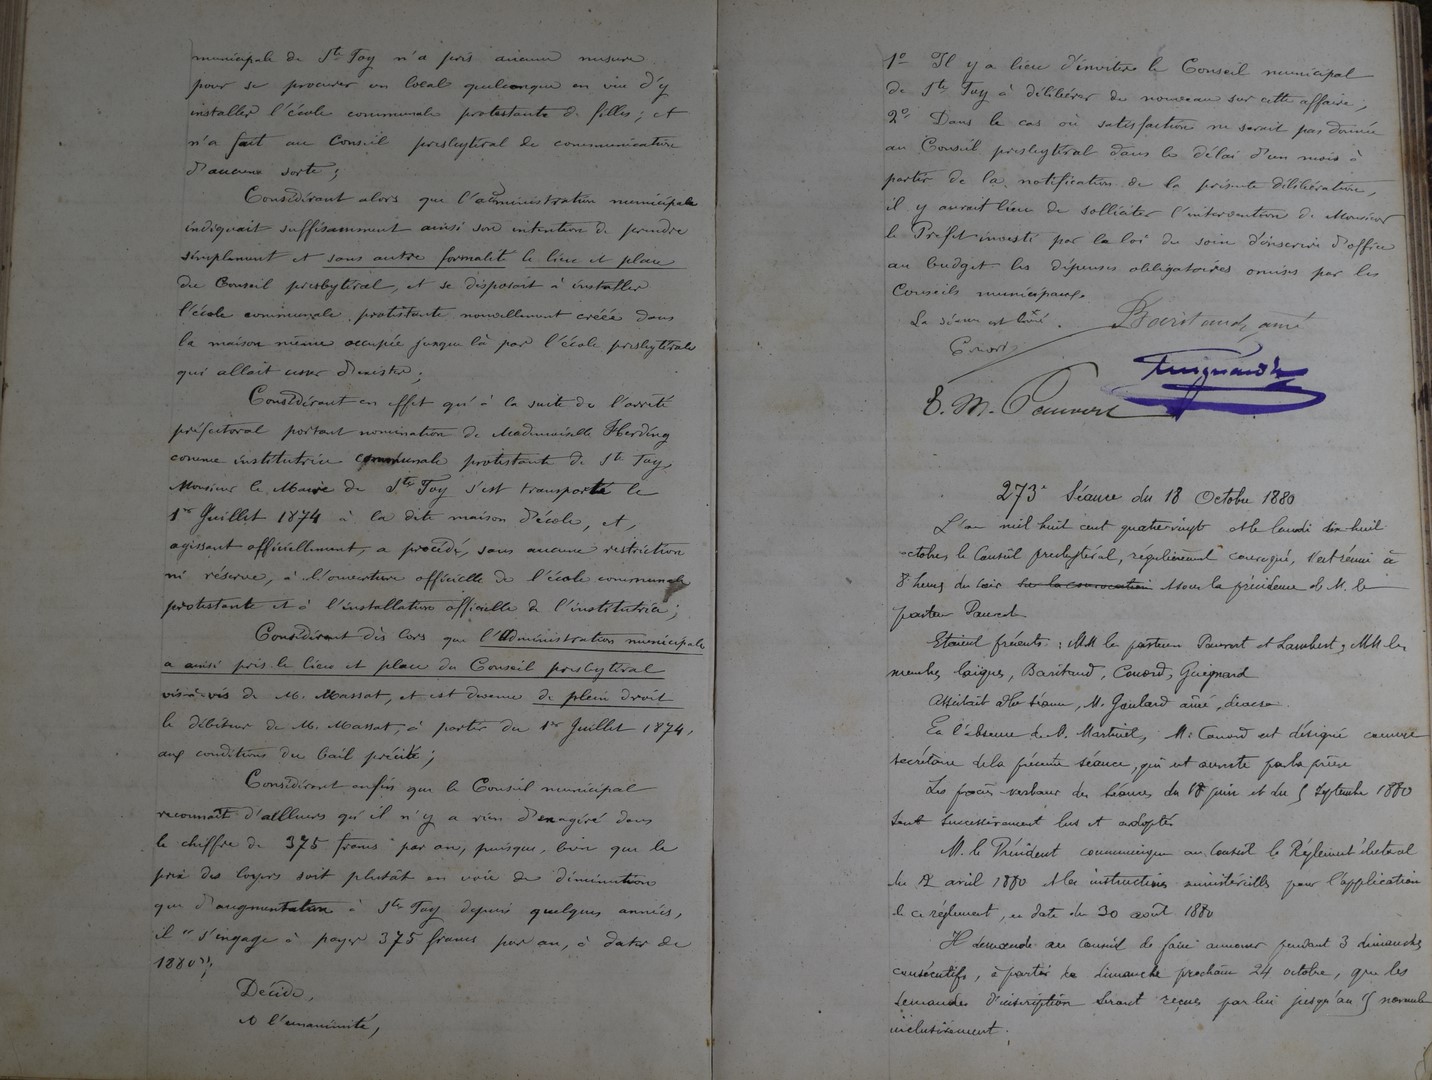 municipale de Ste Foy n'a pris aucune mesure
pour se procurer un local quelconque en vue d'y
installer l'école communale protestante de filles ; et
n'a fait au Conseil presbytéral de communication
d'aucune sorte ;
Considérant alors que l'administration municipale
indiquait suffisamment ainsi son intention de prendre
simplement et sans autre formalité le lieu et place
du Conseil presbytéral, et se disposait à installer
l'école communale protestante nouvellement créée dans
la maison même occupée jusque là par l'école presbytérale
qui allait cesser d'exister ;
Considérant en effet qu'à la suite de l'arrêté
préfectoral portant nomination de Mademoiselle Herding
comme institutrice communale protestante de Ste Foy,
Monsieur le Maire de Ste Foy s'est transporté le
1er Juillet 1874 à la dite maison d'école, et,
agissant officiellement, a procédé, sans aucune restriction
ni réserve, à l'ouverture officielle de l'école communale
protestante et à l'installation officielle de l'institutrice ;
Considérant dès lors que l'Administration municipale
a ainsi pris le lieu et place du Conseil presbytéral
vis-à-vis de M. Massat, et est devenue de plein droit
le débiteur de M. Massat, à partir du 1er Juillet 1874,
aux conditions du bail précité ;
Considérant enfin que le Conseil municipal
reconnaît d'ailleurs qu'il n'y a rien d'exagéré dans
le chiffre de 375 francs par an, puisque, bien que le
prix des loyers soit plutôt en voie de diminution
que d'augmentation à Ste Foy depuis quelques années,
il "s'engage à payer 375 francs par an, à dater de
1880" ;
Décide,
A l'unanimité,
1o Il y a lieu d'inviter le Conseil municipal
de Ste Foy à délibérer de nouveau sur cette affaire ;
2o Dans le cas où satisfaction ne serait pas donnée
au Conseil presbytéral dans le délai d'un mois à
partir de la notification de la présente délibération,
il y aurait lieu de solliciter l'intervention de Monsieur
le Préfet investi par la loi du soin d'inscrire d'office
au budget les dépenses obligatoires omises par les
Conseils municipaux.
La séance est levée.
Baritaud, ainé
Conord
Guignard
E. M. Pauvert
273e Séance du 18 Octobre 1880
L'an mil huit cent quatrevingt et le lundi dix huit
octobre le Conseil presbytéral, régulièrement convoqué, s'est réuni à
8 heures du soir sur la convocation et sous la présidence de M. le
pasteur Pauvert.
Etaient présents : MM les pasteurs Pauvert et Lambert ; MM les
membres laïques, Baritaud, Conord, Guignard
Assistait à la séance, M. Goulard aîné, diacre.
En l'absence de M. Martinel, M. Conord est désigné comme
secrétaire de la présente séance, qui est ouverte par la prière
Les procès-verbaux des séances du 18 juin et du 5 Septembre 1880
sont successivement lus et adoptés
M. le Président communique au Conseil le Règlement électoral
du 12 avril 1880 et les instructions ministérielles pour l'application
de ce règlement, en date du 30 août 1880
Il demande au Conseil de faire annoncer pendant 3 dimanches
consécutifs, à partir de dimanche prochain 24 octobre, que les
demandes d'inscription seront reçues par lui jusqu'au 15 novembre
inclusivement.